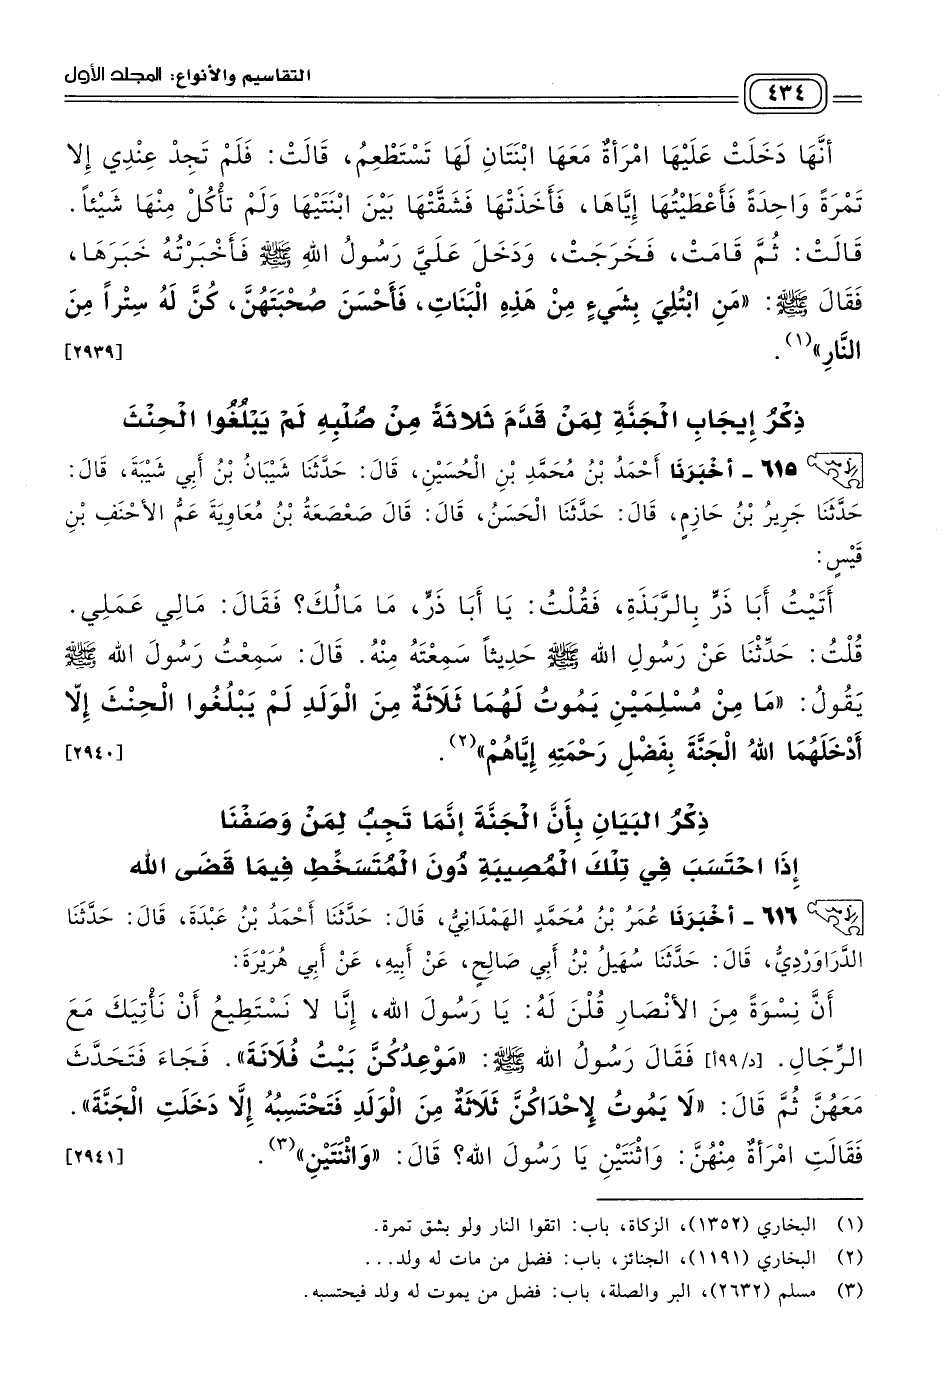 التقاسيم والأنواع: المجلد الأول
٤٣٤
أَنَّهَا دَخَلَتْ عَلَيْهَا امْرَأَةٌ مَعَهَا ابْنَتَانِ لَهَا تَسْتَطْعِمُ، قَالَتْ: فَلَمْ تَجِدْ عِنْدِي إِلا
تَمْرَةً وَاحِدَةً فَأَعْطَيْتُهَا إِيَّاهَا، فَأَخَذَتْهَا فَشَقَّتْهَا بَيْنَ ابْنَتَيْهَا وَلَمْ تأْكُلْ مِنْهَا شَيْئاً.
قَالَتْ: ثُمَّ قَامَتْ، فَخَرَجَتْ، وَدَخَلَ عَلَيَّ رَسُولُ اللهِ ﷺ فَأَخْبَرْتُهُ خَبَرَهَا،
فَقَالَ ﷺ: «مَنِ ابْتُلِيَ بِشَيءٍ مِنْ هَذِهِ الْبَنَاتِ، فَأَحْسَنَ صُحْبَتَهُنَّ، كُنَّ لَهُ سِتْراً مِنَ
النَّارِ»(١). [٢٩٣٩]
ذِكْرُ إِيجَابِ الْجَنَّةِ لِمَنْ قَدَّمَ ثَلاثَةً مِنْ صُلْبِهِ لَمْ يَبْلُغُوا الْحِنْثَ
٦١٥ - أَخْبَرَنَا أَحْمَدُ بْنُ مُحَمَّدِ بْنِ الْحُسَيْنِ، قَالَ: حَدَّثَنَا شَيْبَانُ بْنُ أَبِي شَيْبَةَ، قَالَ:
حَدَّثَنَا جَرِيرُ بْنُ حَازِمٍ، قَالَ: حَدَّثَنَا الْحَسَنُ، قَالَ: قَالَ صَعْصَعَةُ بْنُ مُعَاوِيَةَ عَمُّ الأَحْنَفِ بْنِ
قَيْسٍ:
أَتَيْتُ أَبَا ذَرٍّ بِالرَّبَذَةِ، فَقُلْتُ: يَا أَبَا ذَرٍّ، مَا مَالُكَ؟ فَقَالَ: مَالِي عَمَلِي.
قُلْتُ: حَدِّثْنَا عَنْ رَسُولِ الله ﷺ حَدِيثاً سَمِعْتَهُ مِنْهُ. قَالَ: سَمِعْتُ رَسُولَ الله ﷺ
يَقُولُ: «مَا مِنْ مُسْلِمَيْنِ يَمُوتُ لَهُمَا ثَلَاثَةٌ مِنَ الْوَلَدِ لَمْ يَبْلُغُوا الْحِنْثَ إِلَّا
أَدْخَلَهُمَا اللهُ الْجَنَّةَ بِفَضْلِ رَحْمَتِهِ إِيَّاهُمْ»(٢). [٢٩٤٠]
ذِكْرُ الْبَيَانِ بِأَنَّ الْجَنَّةَ إِنَّمَا تَجِبُ لِمَنْ وَصَفْنَا
إِذَا احْتَسَبَ فِي تِلْكَ الْمُصِيبَةِ دُونَ الْمُتَسَخِّطِ فِيمَا قَضَى الله
٦١٦ - أَخْبَرَنَا عُمَرُ بْنُ مُحَمَّدٍ الهَمْدَانِيُّ، قَالَ: حَدَّثَنَا أَحْمَدُ بْنُ عَبْدَةَ، قَالَ: حَدَّثَنَا
الدَّرَاوَرْدِيُّ، قَالَ: حَدَّثَنَا سُهَيْلُ بْنُ أَبِي صَالِحٍ، عَنْ أَبِيهِ، عَنْ أَبِي هُرَيْرَةَ:
أَنَّ نِسْوَةً مِنَ الأَنْصَارِ قُلْنَ لَهُ: يَا رَسُولَ الله، إِنَّا لا نَسْتَطِيعُ أَنْ نَأْتِيَكَ مَعَ
الرِّجَالِ. [د/٩٩أ] فَقَالَ رَسُولُ الله ﷺ: «مَوْعِدُكُنَّ بَيْتُ فُلَانَةَ». فَجَاءَ فَتَحَدَّثَ
مَعَهُنَّ ثُمَّ قَالَ: «لَا يَمُوتُ لِإِحْدَاكُنَّ ثَلَاثَةٌ مِنَ الْوَلَدِ فَتَحْتَسِبُهُ إِلَّا دَخَلَتِ الْجَنَّةَ».
فَقَالَتِ امْرَأَةٌ مِنْهُنَّ: وَاثْنَتَيْنِ يَا رَسُولَ الله؟ قَالَ: «وَاثْنَتَيْنِ»(٣). [٢٩٤١]
(١) البخاري (١٣٥٢)، الزكاة، باب: اتقوا النار ولو بشق تمرة.
(٢) البخاري (١١٩١)، الجنائز، باب: فضل من مات له ولد...
(٣) مسلم (٢٦٣٢)، البر والصلة، باب: فضل من يموت له ولد فيحتسبه.